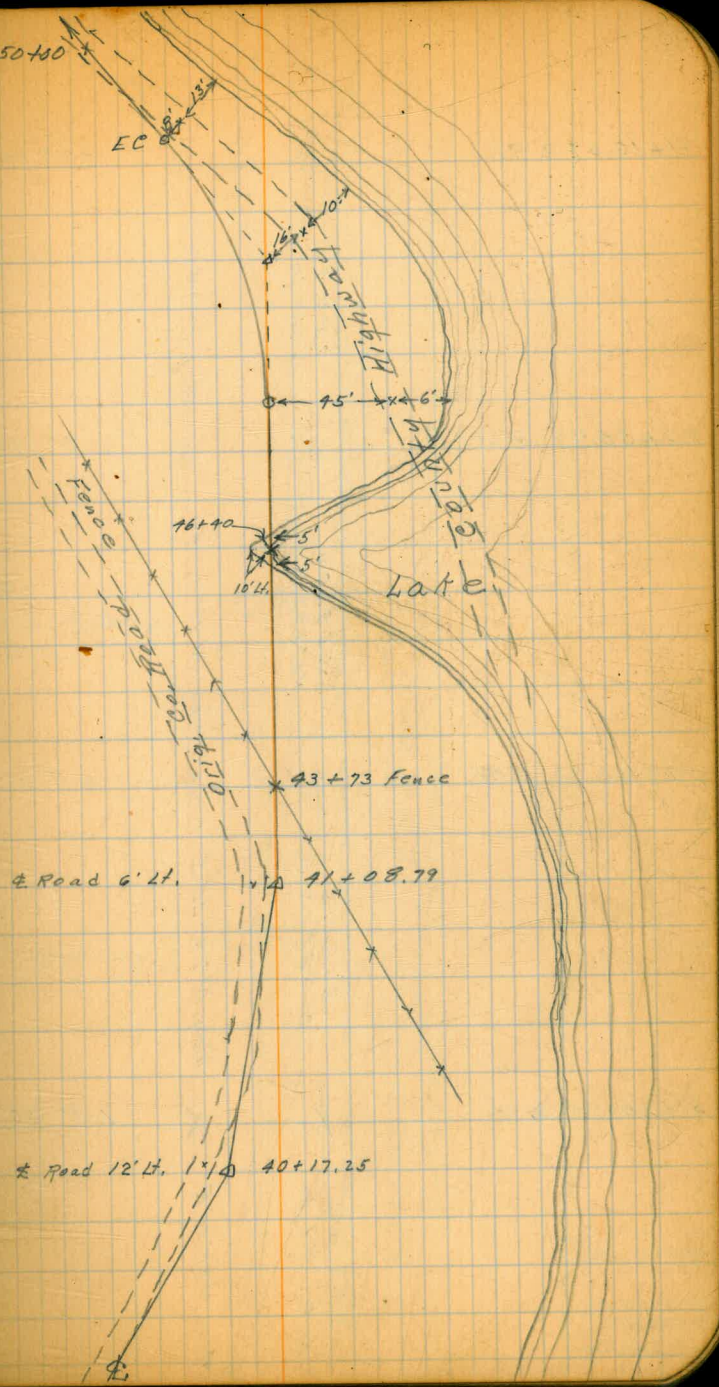 50+00
13'
8'
EC
10'
16'
Highway
45' 6'
46+40
5'
5'
10' Lt.
Lake
Fence
Road
43+73 Fence
℄ Road 6' Lt. 41+08.79
℄ Road 12' Lt. 40+17.25
℄